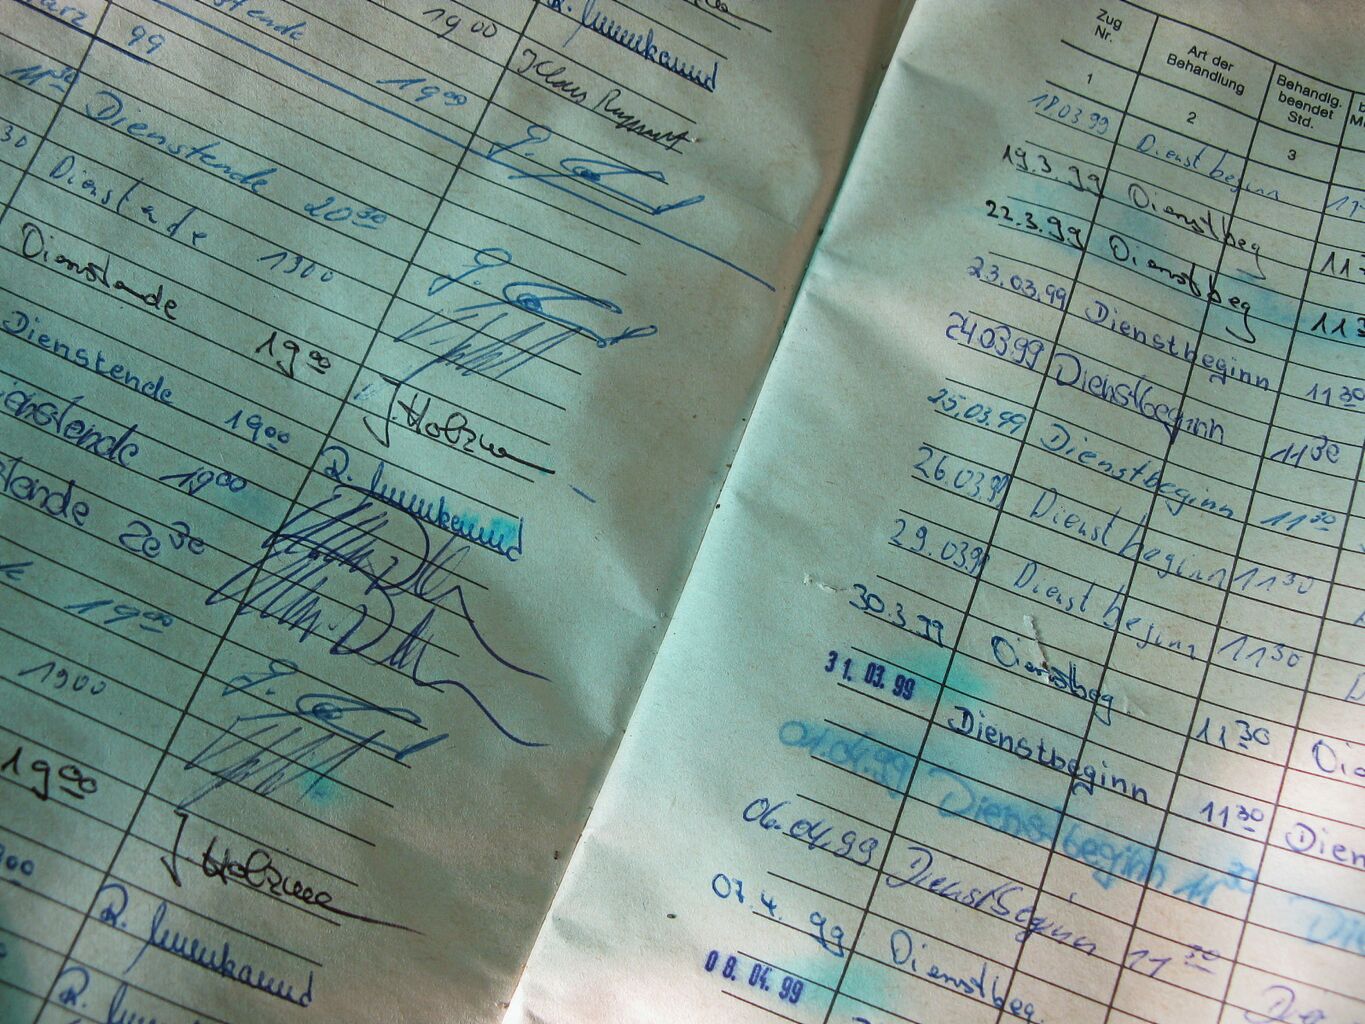 19 00
R.
99
stende 19 00
Klaus
11 30
Dienstende 20 30
30 Dienstende 1300
Dienstende 19 00
J. Holzma
Dienstende 19 00
R.
ienstende 19 00
tende 20 30
19 00
1900
19 00
J Holzma
00
R.
R.
Zug Nr.
Art der Behandlung
Behandlg. beendet Std.
1 2 3
18.03 99 Dienstbeginn 11
19.3.99 Dienstbeg 11 3
22.3.99 Dienstbeg 11 3
23.03.99 Dienstbeginn 11 30
24.03.99 Dienstbeginn 11 30
25.03.99 Dienstbeginn 11 30
26.03.9 Dienstbeginn 11 30
29.03.9 Dienstbeginn 11 30
30.3.99 Dienstbeg 11 30 Die
31. 03. 99 Dienstbeginn 11 30 Dien
01.04.99 Dienstbeginn 11 30 Die
06.04.99 Dienstbeginn 11 30
07.4.99 Dienstbeg.
08. 04. 99